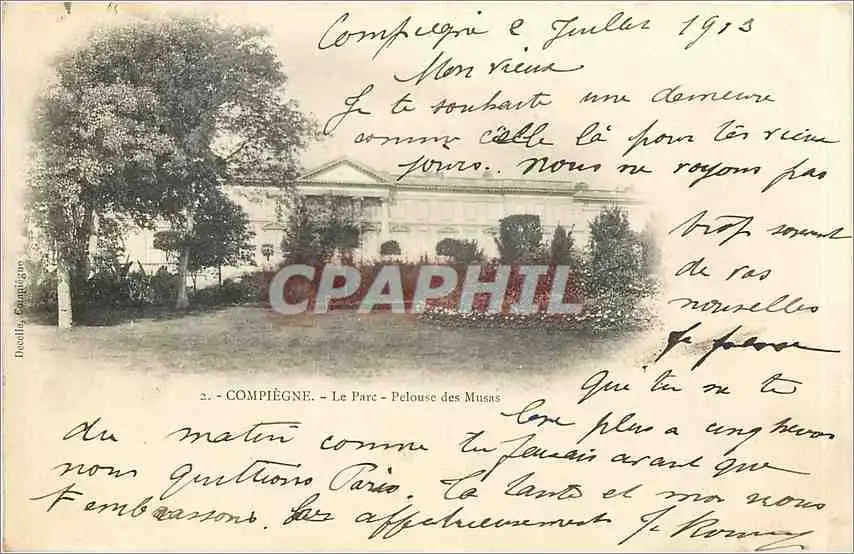 Compiègne 2 Juillet 1903
Mon vieux
Je te souhaite une demeure
comme celle là pour tes vieux
jours. Nous ne voyons pas
trop souvent
de vos
nouvelles
Je pense
Que tu ne te
lève plus a cinq heures
du matin comme tu faisais avant que
nous quittions Paris. La tante et moi nous
t'embrassons affectueusement
CPARAMA.COM
Decelle, Compiègne
2. - COMPIÈGNE. - Le Parc - Pelouse des Musas